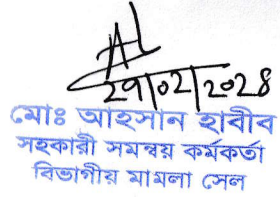 ২৭/০২/২০২৪
মোঃ আহসান হাবীব
সহকারী সমন্বয় কর্মকর্তা
বিভাগীয় মামলা সেল